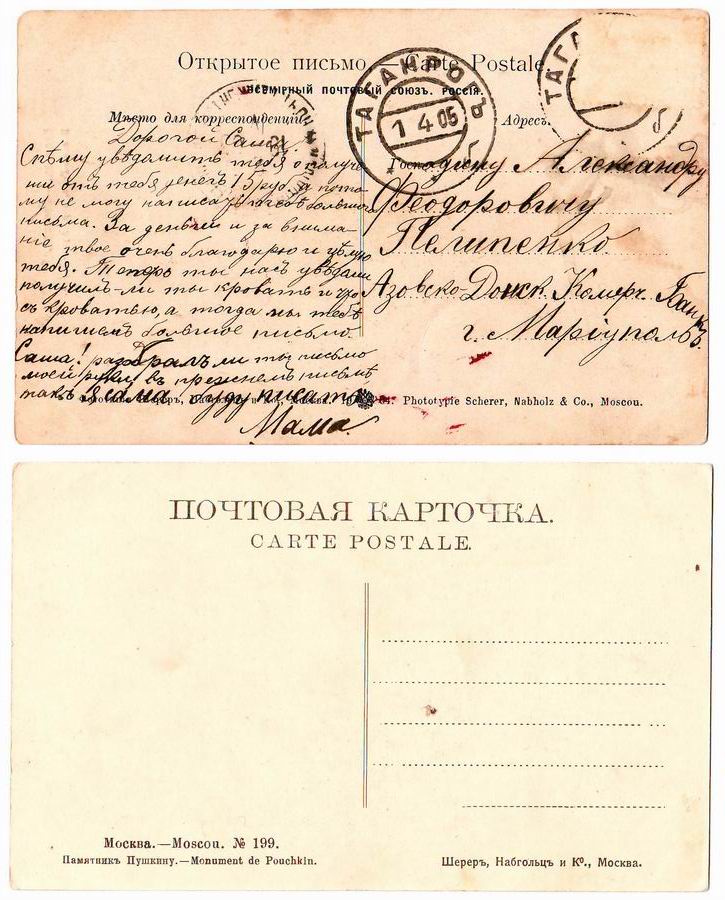 Открытое письмо. — Carte Postale.
ВСЕМІРНЫЙ ПОЧТОВЫЙ СОЮЗЪ. РОССІЯ.
Мѣсто для корреспонденціи
Адресъ.
ТАГАНРОГЪ
1 4 05
ТАГ
б
Дорогой Саша!
Спѣшу увѣдомить тебя о получе
ніи отъ тебя денегъ 15 руб., пото
му не могу написать тебѣ большого
письма. За деньги и за внима
ніе твое очень благодарю и цѣлую
тебя. Теперь ты насъ увѣдоми
получилъ-ли ты кровать и что
съ кроватью, а тогда мы тебѣ
напишемъ большое письмо.
Саша! разобралъ ли ты письмо
моей руки въ прежнемъ письмѣ
такъ я сама буду писать
Мама.
Господину Александру
Феодоровичу
Пелипенко
Азовско-Донск. Комерч. Банкъ
г. Маріуполь
Phototypie Scherer, Nabholz & Co., Moscou.
ПОЧТОВАЯ КАРТОЧКА.
CARTE POSTALE.
Москва.—Moscou. № 199.
Памятникъ Пушкину.—Monument de Pouchkin.
Шереръ, Набгольцъ и Ко, Москва.